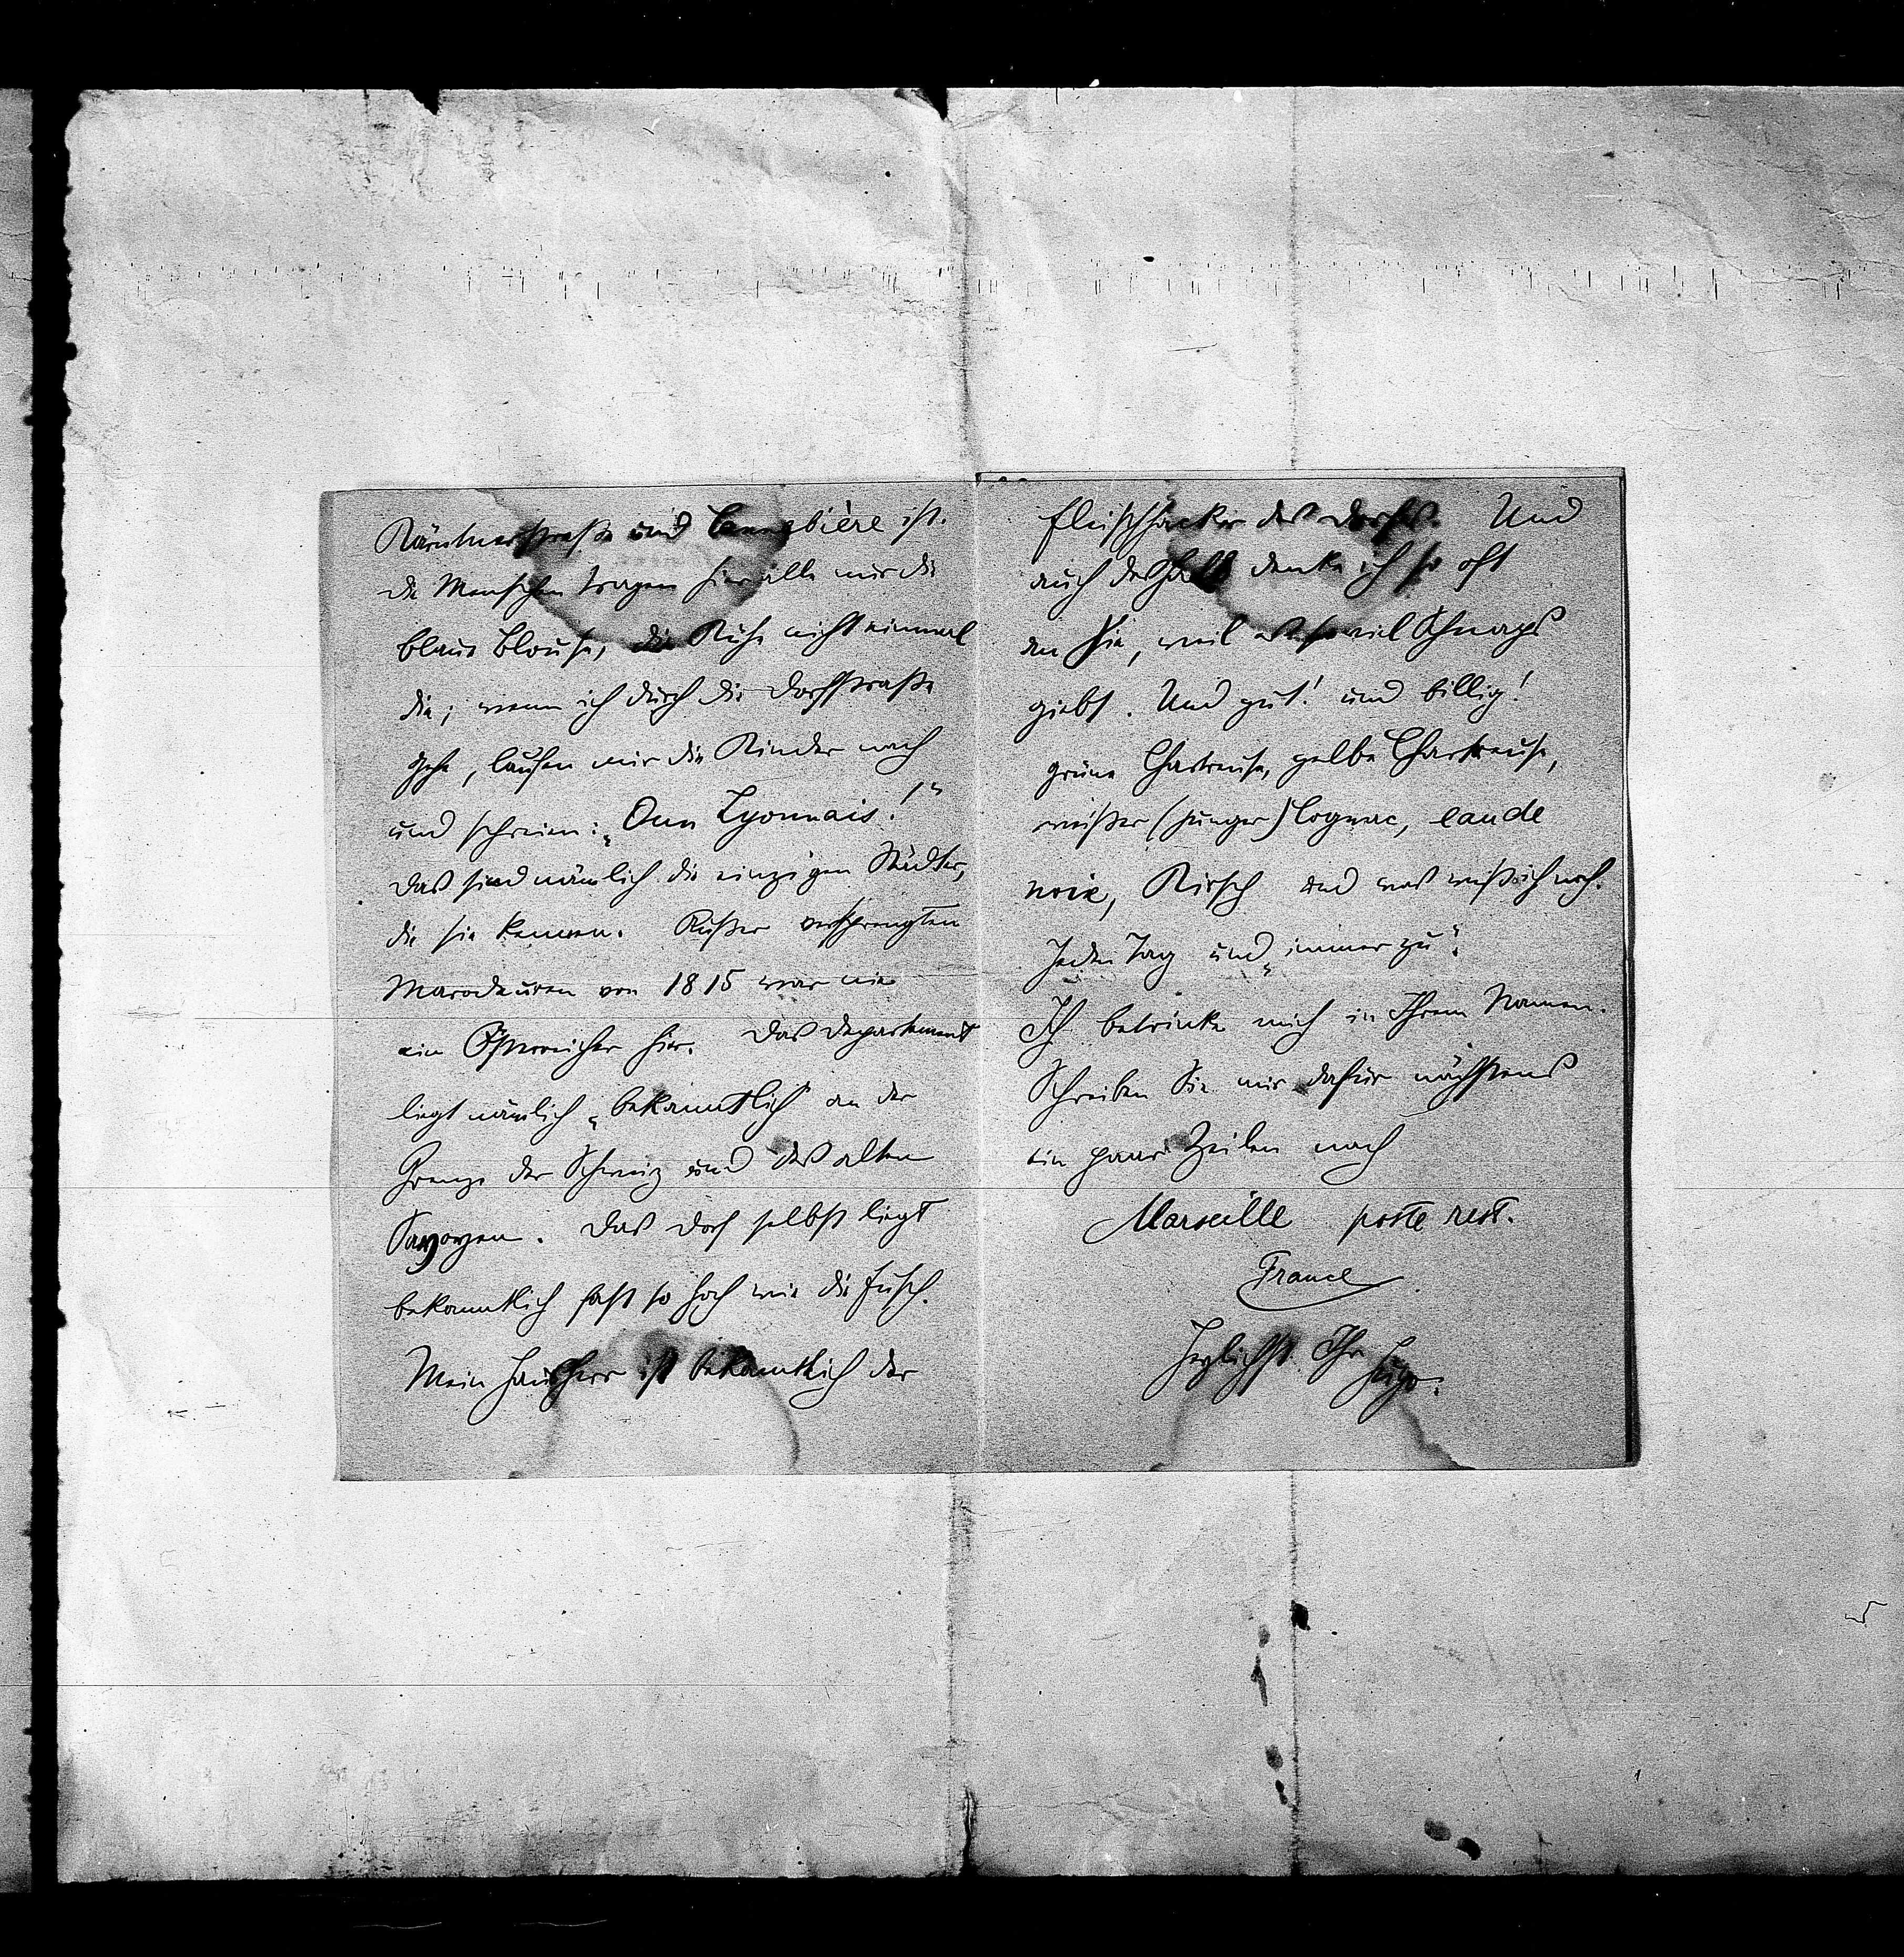 Kärntnerstraße und Cannebière ist.
die Menschen tragen hier alle nur die
blaue Blouse, die Kühe nicht einmal
die; wenn ich durch die Dorfstraße
gehe, laufen mir die Kinder nach
und schreien: „Oun Lyonnais!“
Das sind nämlich die einzigen Städter,
die sie kennen. Außer versprengten
Marodeuren von 1815 war nie
ein Österreicher hier. Das Departement
liegt nämlich „bekanntlich“ an der
Grenze der Schweiz und des alten
Savoyen. Das Dorf selbst liegt
bekanntlich fast so hoch wie die Fusch.
Mein Hausherr ist bekanntlich der
Fleischhacker des Dorfes. Und
auch deshalb denke ich so oft
an Sie, weil es so viel Schnaps
giebt. Und gut! und billig!
grüne Chartreuse, gelbe Chartreuse,
weißer (junger) Cognac, eau de
noix, Kirsch und was weiß ich noch.
Jeden Tag und „immer zu“.
Ich betrinke mich in Ihrem Namen.
Schreiben Sie mir dafür nächstens
ein paar Zeilen nach
Marseille poste rest.
France
Herzlichst Ihr
Hugo.